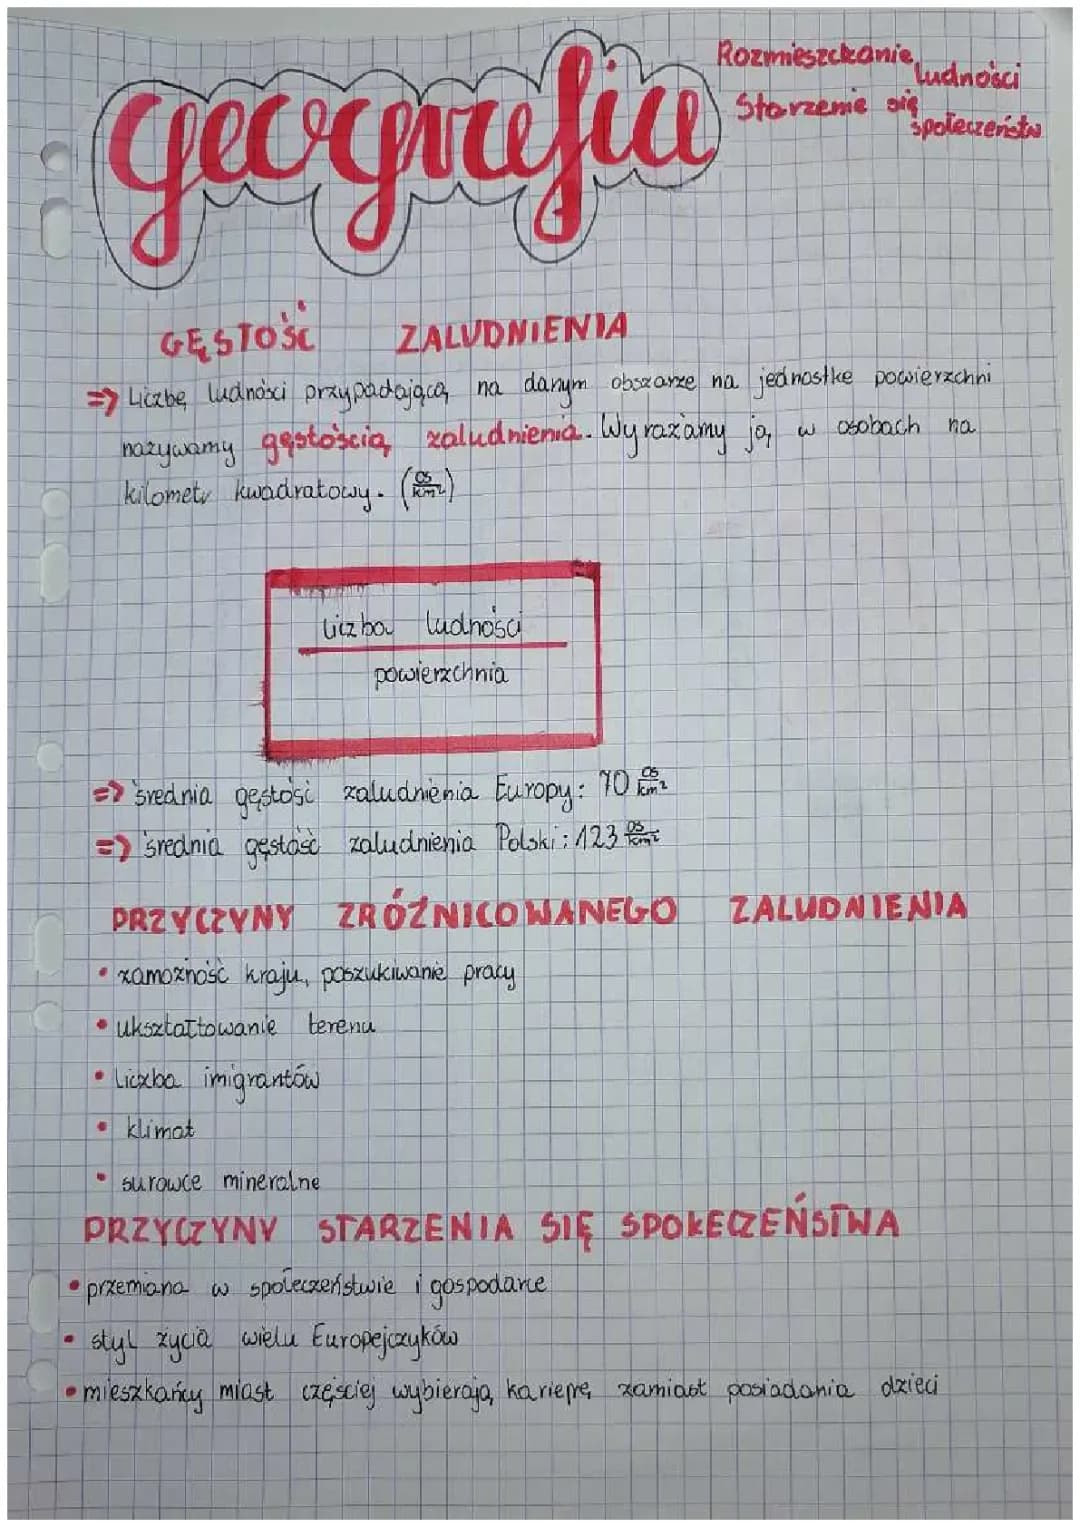 geografia
Rozmieszczanie ludności
Starzenie się społeczeństw
GĘSTOŚĆ ZALUDNIENIA
=> Liczbę ludności przypadającą na danym obszarze na jednostkę powierzchni
nazywamy gęstością zaludnienia. Wyrażamy ją w osobach na
kilometr kwadratowy. (os/km²)
liczba ludności
powierzchnia
=> średnia gęstość zaludnienia Europy: 70 os/km²
=> średnia gęstość zaludnienia Polski: 123 os/km²
PRZYCZYNY ZRÓŻNICOWANEGO ZALUDNIENIA
• zamożność kraju, poszukiwanie pracy
• ukształtowanie terenu
• Liczba imigrantów
• klimat
• surowce mineralne
PRZYCZYNY STARZENIA SIĘ SPOŁECZEŃSTWA
• przemiana w społeczeństwie i gospodarce
• styl życia wielu Europejczyków
• mieszkańcy miast częściej wybierają karierę zamiast posiadania dzieci